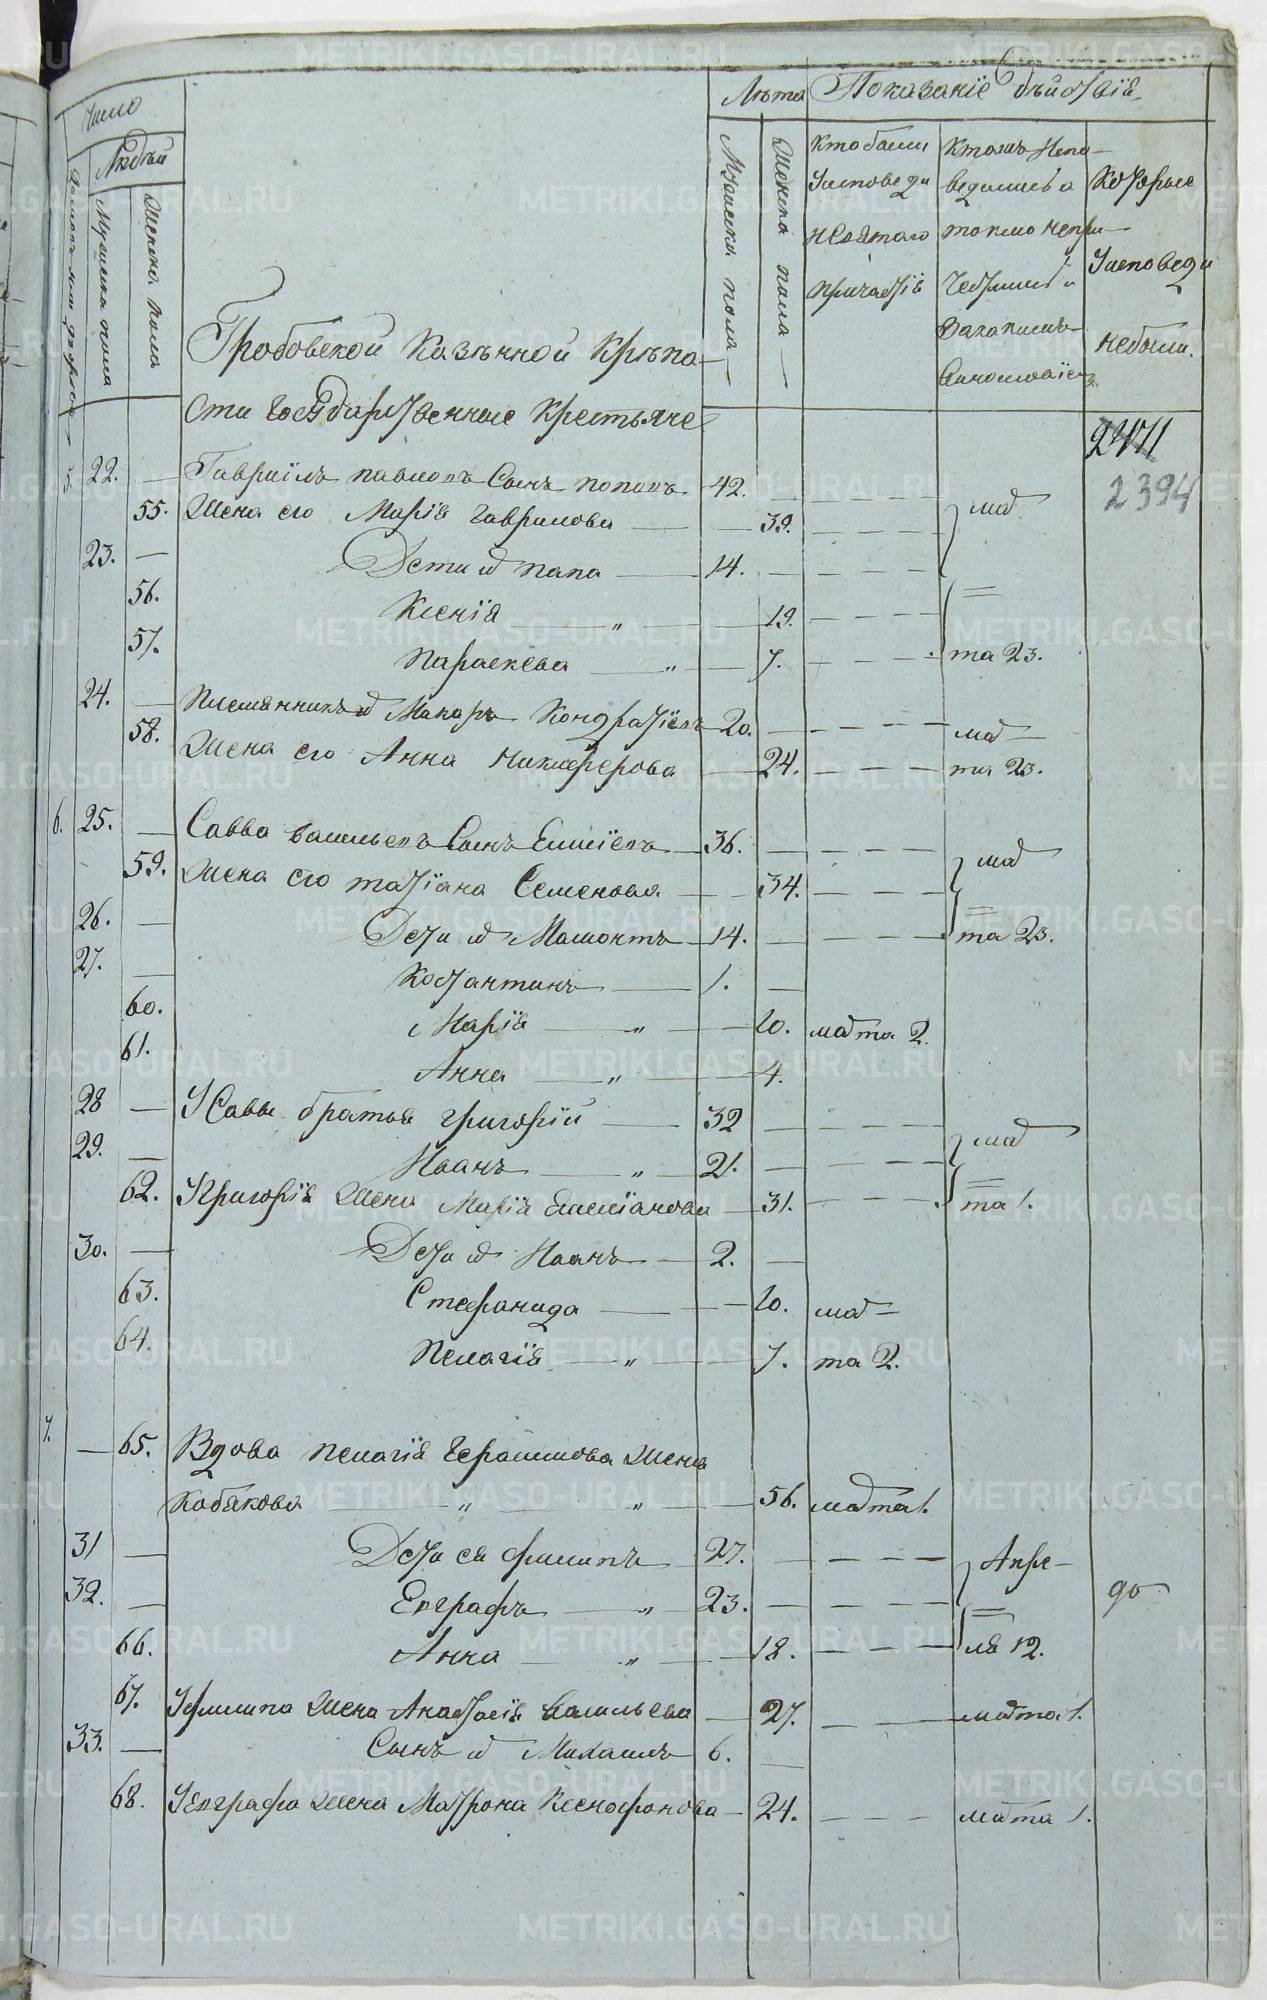 Число
Людей
Мужеска пола
Женска пола
Лѣта
Мужеска пола
Женска пола
Показанїе дѣйствїя
Кто были
Исповеди
и святаго
причастїя
Кто исповедались а
токмо непричестились и
Которые
Исповеди
небыли.
Гробовской Казѣнной Крѣпо
сти Государственные Крестьяне
2394
5. 22. — Гаврїилъ павловъ Сынъ поповъ 42. —
55. Жена его Марїя Гаврилова — 39. мар
23. — Дети их папа — 14. —
56. Ксенїя — „ — 19.
57. Параскева — „ — 7. та 23.
24. — Племянникъ их Макаръ Кондратїевъ 20. — мар
58. Жена его Анна Никиферова — 24. та 23.
6. 25. — Савва васильевъ Сынъ Елисїевъ — 36. —
59. Жена его татїана Семенова — 34. мар
26. — Дети их Мамонтъ — 14. — та 23.
27. — Костантинъ — 1. —
60. Марїя — „ — 10. марта 2.
61. Анна — „ — 4.
28 — У Савы братья григорїй — 32 —
29. — Иванъ — „ — 21. — мар
62. У Григорїя Жена Марїя Емелїанова — 31. та 1.
30. — Дети их Иванъ — 2. —
63. Стефанида — 10. мар
64. Пелагїя — „ — 7. та 2.
7. — 65. Вдова пелагїя Герасимова Жена
Кобякова — „ — „ — 56. марта 1.
31 — Дети ея филипъ 27. — Апре
32. — Евграфъ — „ — 23. —
90
66. Анна — „ — 18. ля 12.
67. У филипа Жена Анастасїя Васильева — 27. марта 1.
33. — Сынъ их Михаилъ 6. —
68. У Евграфа Жена Матрона Ксенофонова — 24. марта 1.